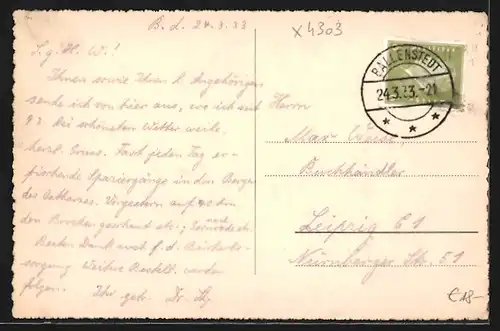 B. d. 24.3.33
x4303
S. g. H. W.!
Ihnen sowie Ihren l. Angehörigen
sende ich von hier aus, wo ich seit
Bei schönstem Wetter weile,
herzl. Gruss. Fast jeden Tag er-
frischende Spaziergänge in den Bergen
des Ostharzes. Vorgestern auf
den Brocken geschaut etc.;
Besten Dank auch f. d. Bücherbe-
sorgung. Weitere Bestell. werden
folgen. Ihr geb. Dr.
BALLENSTEDT
24.3.33.-21
Herrn
Max
Buchhändler
Leipzig C 1
Nürnberger Str. 59
€18-